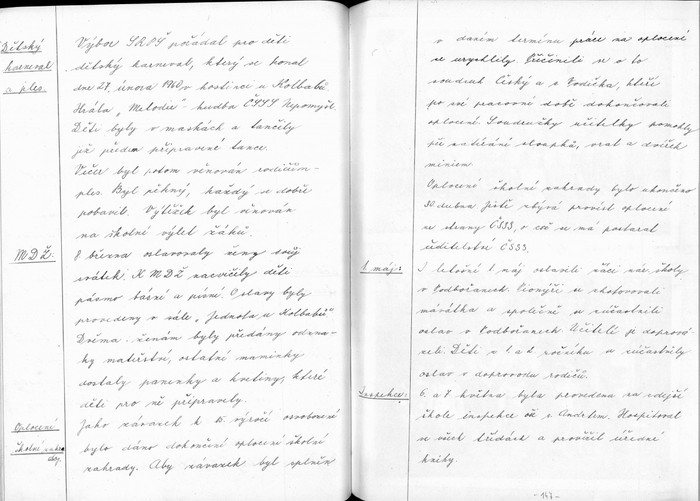 Dětský
karneval
a ples.
Výbor SRPŠ pořádal pro děti
dětský karneval, který se konal
dne 27. února 1960, v hostinci u Kolbabů.
Hrála „Melodie" hudba ČSSS Nepomyšl.
Děti byly v maskách a tančily
již předem připravené tance.
Večer byl potom věnován rodičům-
ples. Byl pěkný, každý se dobře
pobavil. Výtěžek byl věnován
na školní výlet žáků.
MDŽ:
8. března oslavovaly ženy svůj
svátek. K MDŽ nacvičily děti
pásmo básní a písní. Oslavy byly
provedeny v sále „Jednota u Kolbabů"
Dvěma ženám byly předány odzna-
ky mateřství, ostatní maminky
dostaly panenky a květiny, které
děti pro ně připravily.
Oplocení
školní zahra
dy.
Jako závazek k 15. výročí osvobození
bylo dáno dokončení oplocení školní
zahrady. Aby závazek byl splněn
v daném termínu práce na oplocení
se urychlily. Přičinili se o to
soudruh Český a s. Vodička, kteří
po své pracovní době dokončovali
oplocení. Soudružky učitelky pomohly
při natírání sloupků, vrat a dvířek
miniem.
Oplocení školní zahrady bylo ukončeno
30 dubna. Ještě zbývá provést oplocení
ze strany ČSSS, o což se má postarat
ředitelství ČSSS.
1. máj:
I letošní 1 máj oslavili žáci naší školy
v Podbořanech. Pionýři si zhotovovali
mávátka a společně se zúčastnili
oslav v Podbořanech. Učitelé je doprová-
zeli. Děti z 1. a 2. ročníku se zúčastnily
oslav v doprovodu rodičů.
Inspekce:
6. a 7. května byla provedena na zdejší
škole inspekce oši s. Andrlem. Hospitoval
ve všech třídách a prověřil úřední
knihy.
- 147 -